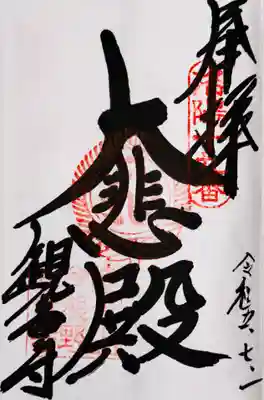 奉拝
大悲殿
観音寺
令和五、七、一